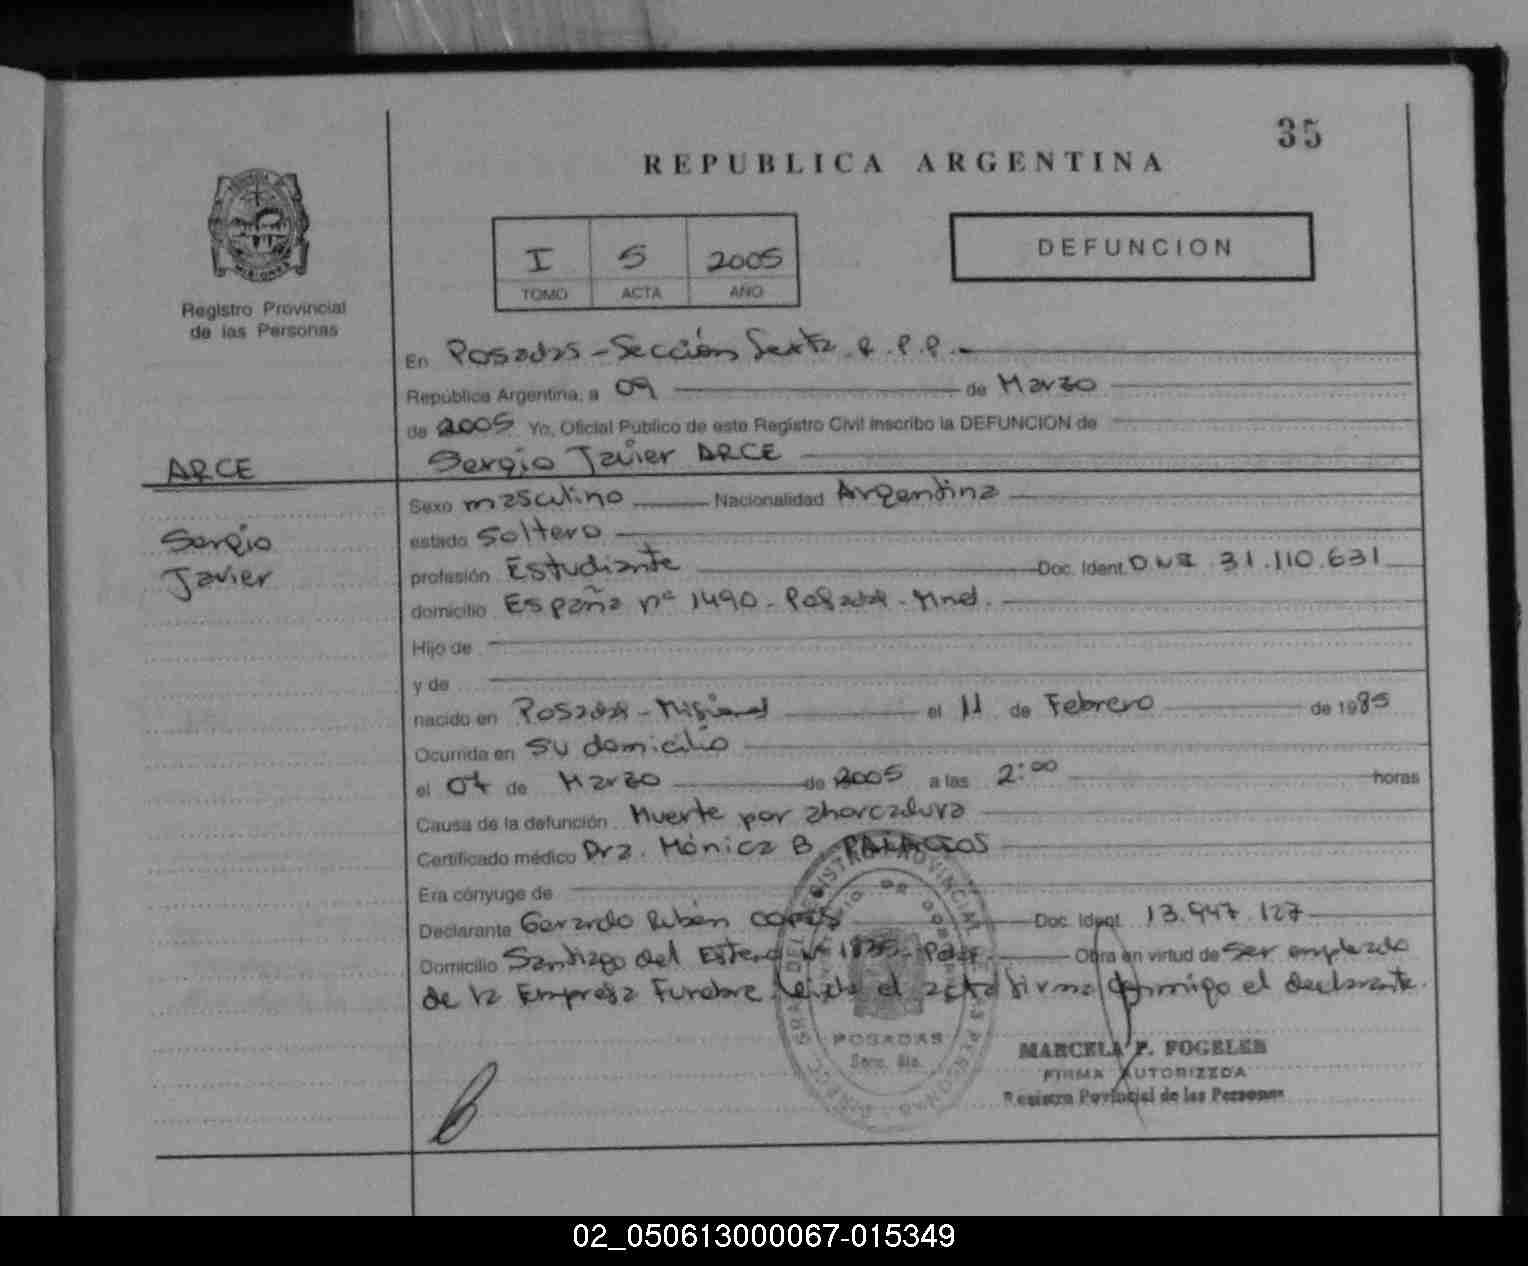 35
REPUBLICA ARGENTINA
I 5 2005
TOMO ACTA AÑO
DEFUNCION
Registro Provincial
de las Personas
En Posadas - Sección Sexta R.P.P. -
República Argentina, a 09 de Marzo
de 2005 Yo, Oficial Público de este Registro Civil inscribo la DEFUNCION de
ARCE
Sergio Javier ARCE
Sergio
Javier
Sexo masculino Nacionalidad Argentina
estado Soltero
profesión Estudiante Doc. Ident. DNI 31.110.631
domicilio España nº 1490 - Posadas - Mnes.
Hijo de
y de
nacido en Posadas - Misiones el 11 de Febrero de 1985
Ocurrida en su domicilio
el 07 de Marzo de 2005 a las 2:00 horas
Causa de la defunción Muerte por ahorcadura
Certificado médico Dra. Mónica B. PALACIOS
Era cónyuge de
Declarante Gerardo Rubén Doc. Ident. 13.947.127
Domicilio Santiago del Estero Nº 1835 - Pdas. Obra en virtud de ser empleado
de la Empresa Funebre. Leída el acta firma conmigo el declarante.
POSADAS
Secc. 6ta.
MARCELA P. FOGELER
FIRMA AUTORIZEDA
Registro Povincial de las Personas
02_050613000067-015349